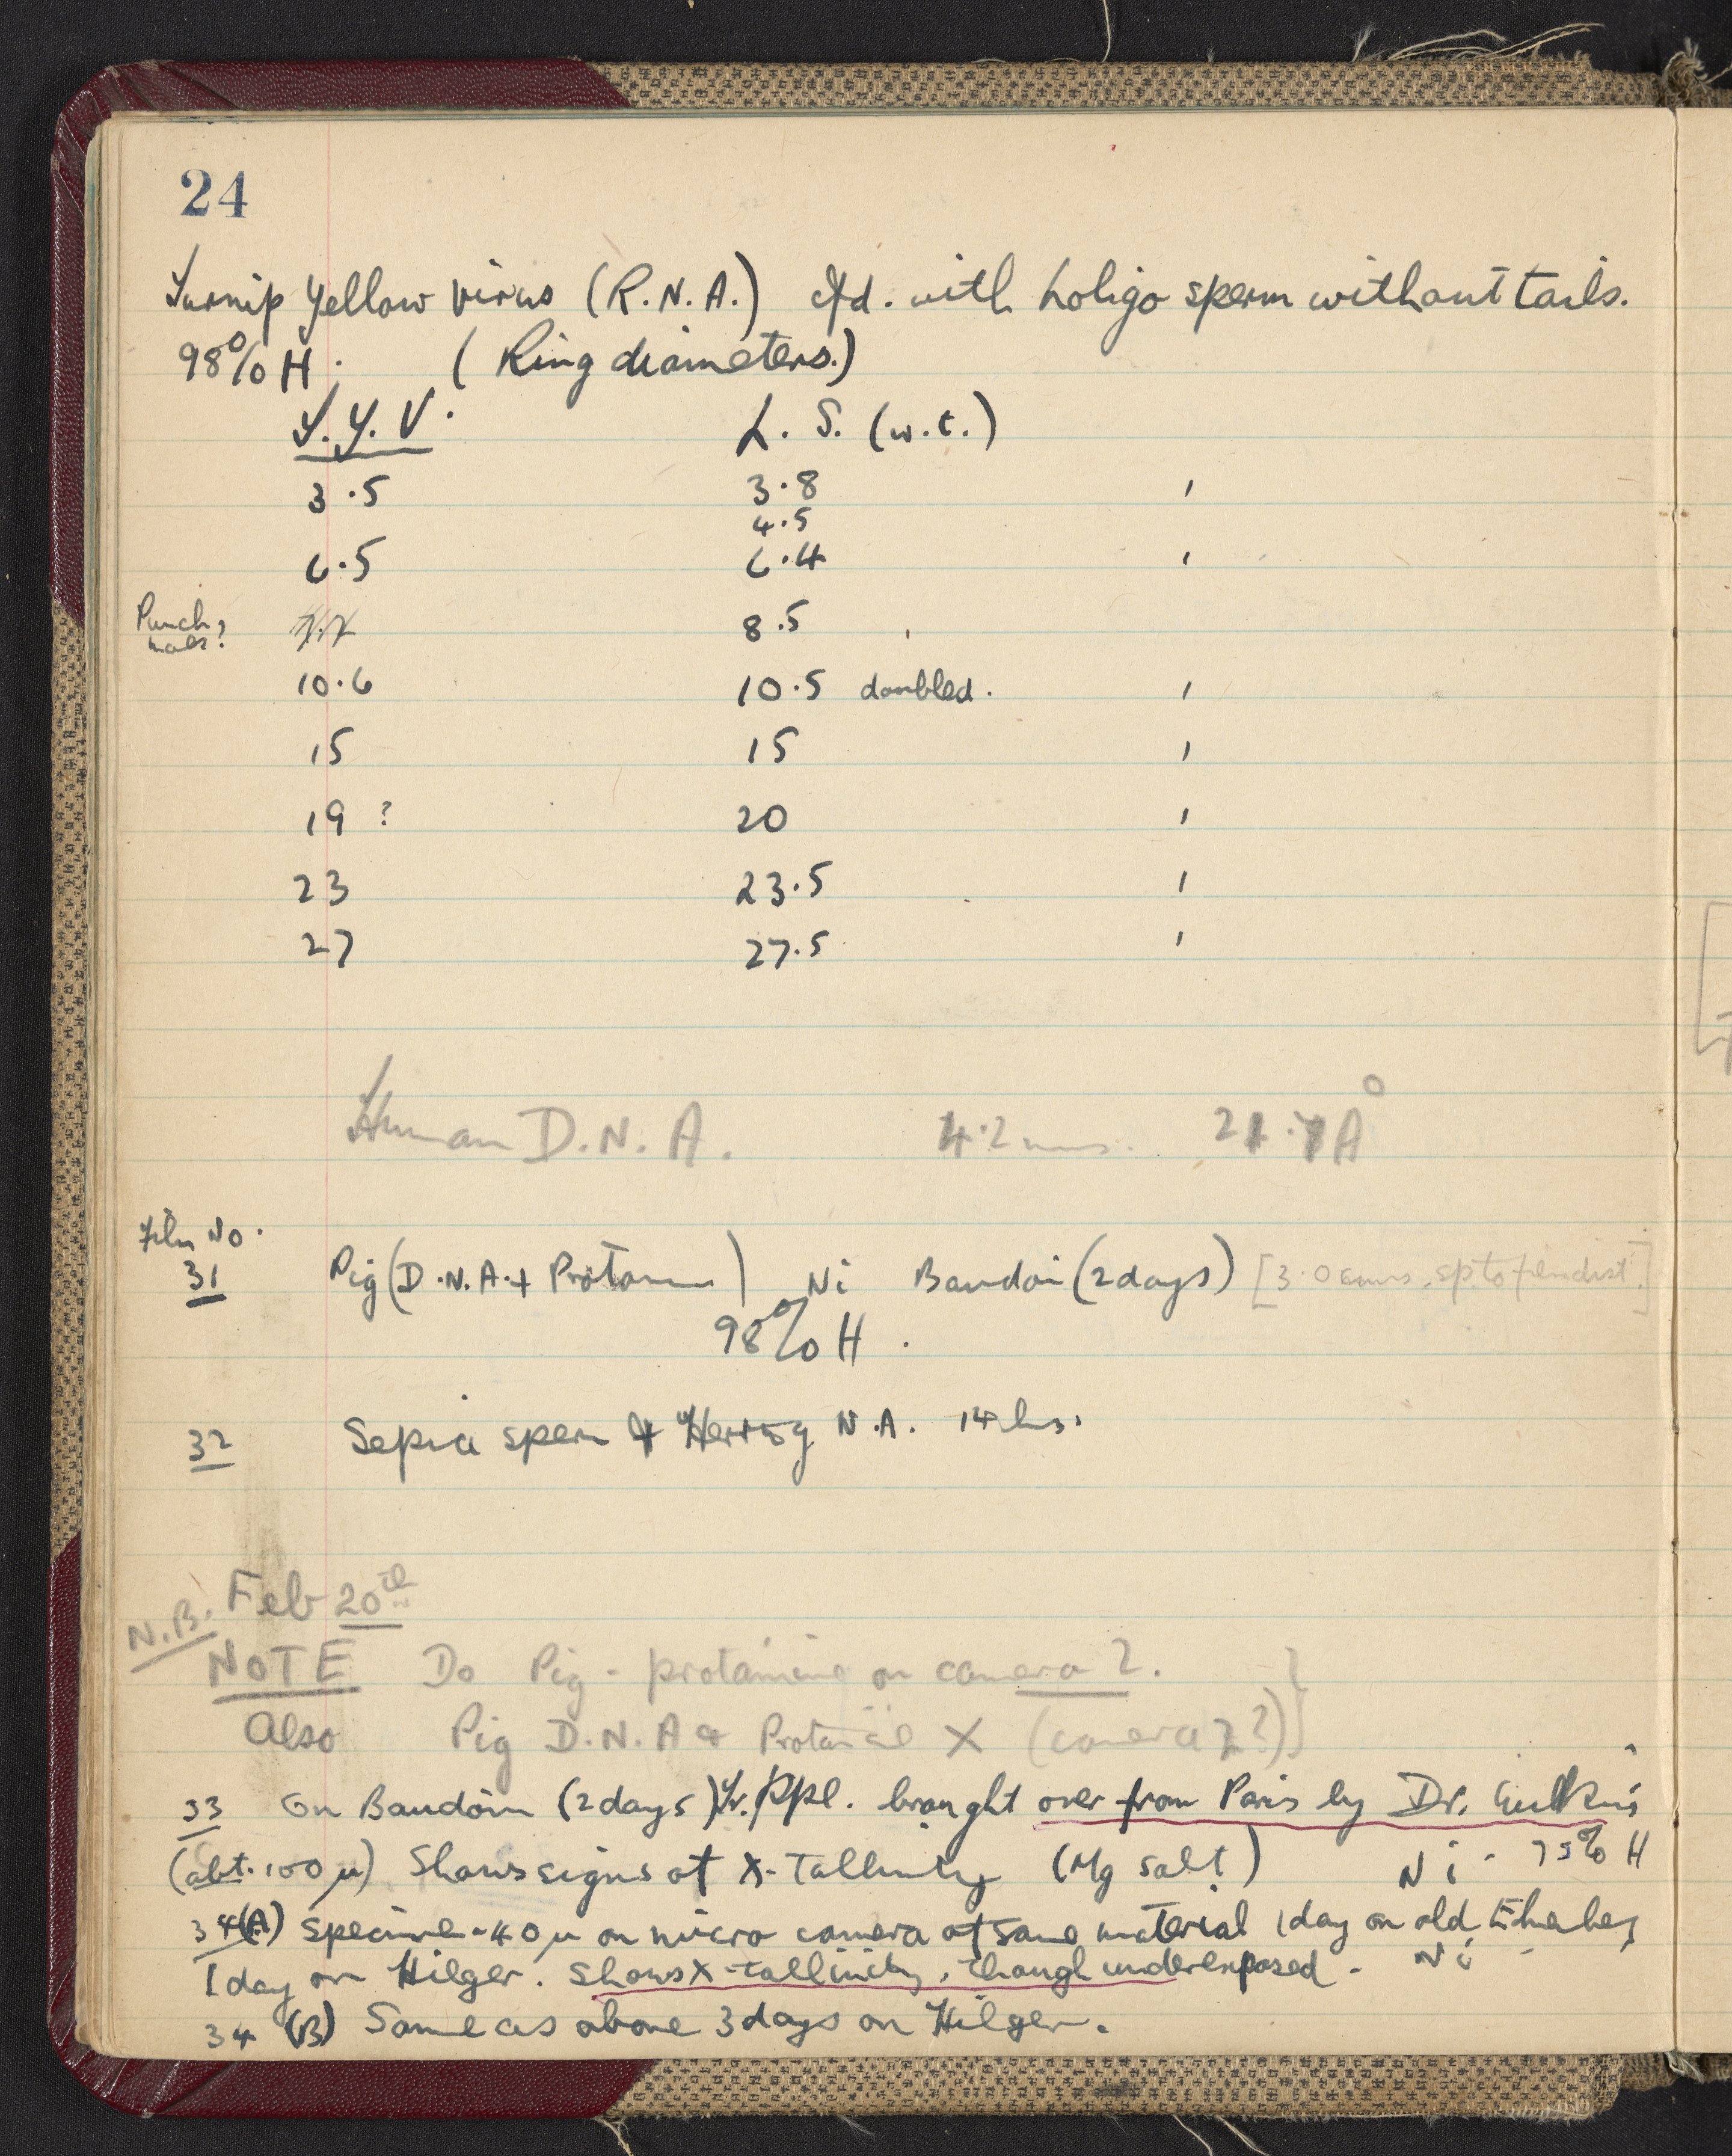 24
Turnip Yellow Virus (R.N.A.) cfd. with Loligo sperm without tails.
98% H. (Ring diameters.)
T.Y.V. L.S. (w.t.)
3.5 3.8 '
4.5
6.5 6.4 '
Punch 8.5
10.6 10.5 doubled. '
15 15 '
19 ? 20 '
23 23.5 '
27 27.5 '
Human D.N.A. 4.2 mms. A°
Film No.
31 Pig (D.N.A. + Protamine) Ni Baudoin (2 days) [3.0 cms. sp. to film dist.]
98% H.
32 Sepia sperm & Herring N.A. 14 hrs.
Feb 20th
N.B.
NOTE Do Pig - protamine on camera 2.
Also Pig D.N.A & Protamine X (camera 2?)
33 On Baudoin (2 days) ppt. brought over from Paris by Dr.
(abt. 100 μ) Shows signs of X-tallinity (Mg salt) Ni - 75% H
34 (A) Specimen ~40 μ on micro camera of same material 1 day on old
1 day on Hilger. Shows X-tallinity, though underexposed. Ni
34 (B) Same as above 3 days on Hilger.